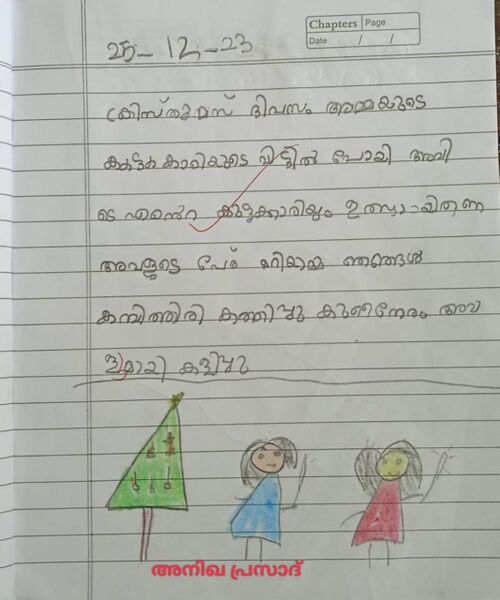 Chapters Page
Date / /
25-12-23
ക്രിസ്തുമസ് ദിവസം അമ്മയുടെ
കൂട്ടുകാരിയുടെ വീട്ടിൽ പോയി അവി
ടെ എൻെറ കൂട്ടുക്കാരിയും ഉണ്ടായിരുന്നു
അവളുടെ പേര് മറിയാമ്മ ഞങ്ങൾ
കമ്പിത്തിരി കത്തിച്ചു കുറേനേരം അവ
ളുമായി കളിച്ചു
അനിഖ പ്രസാദ്